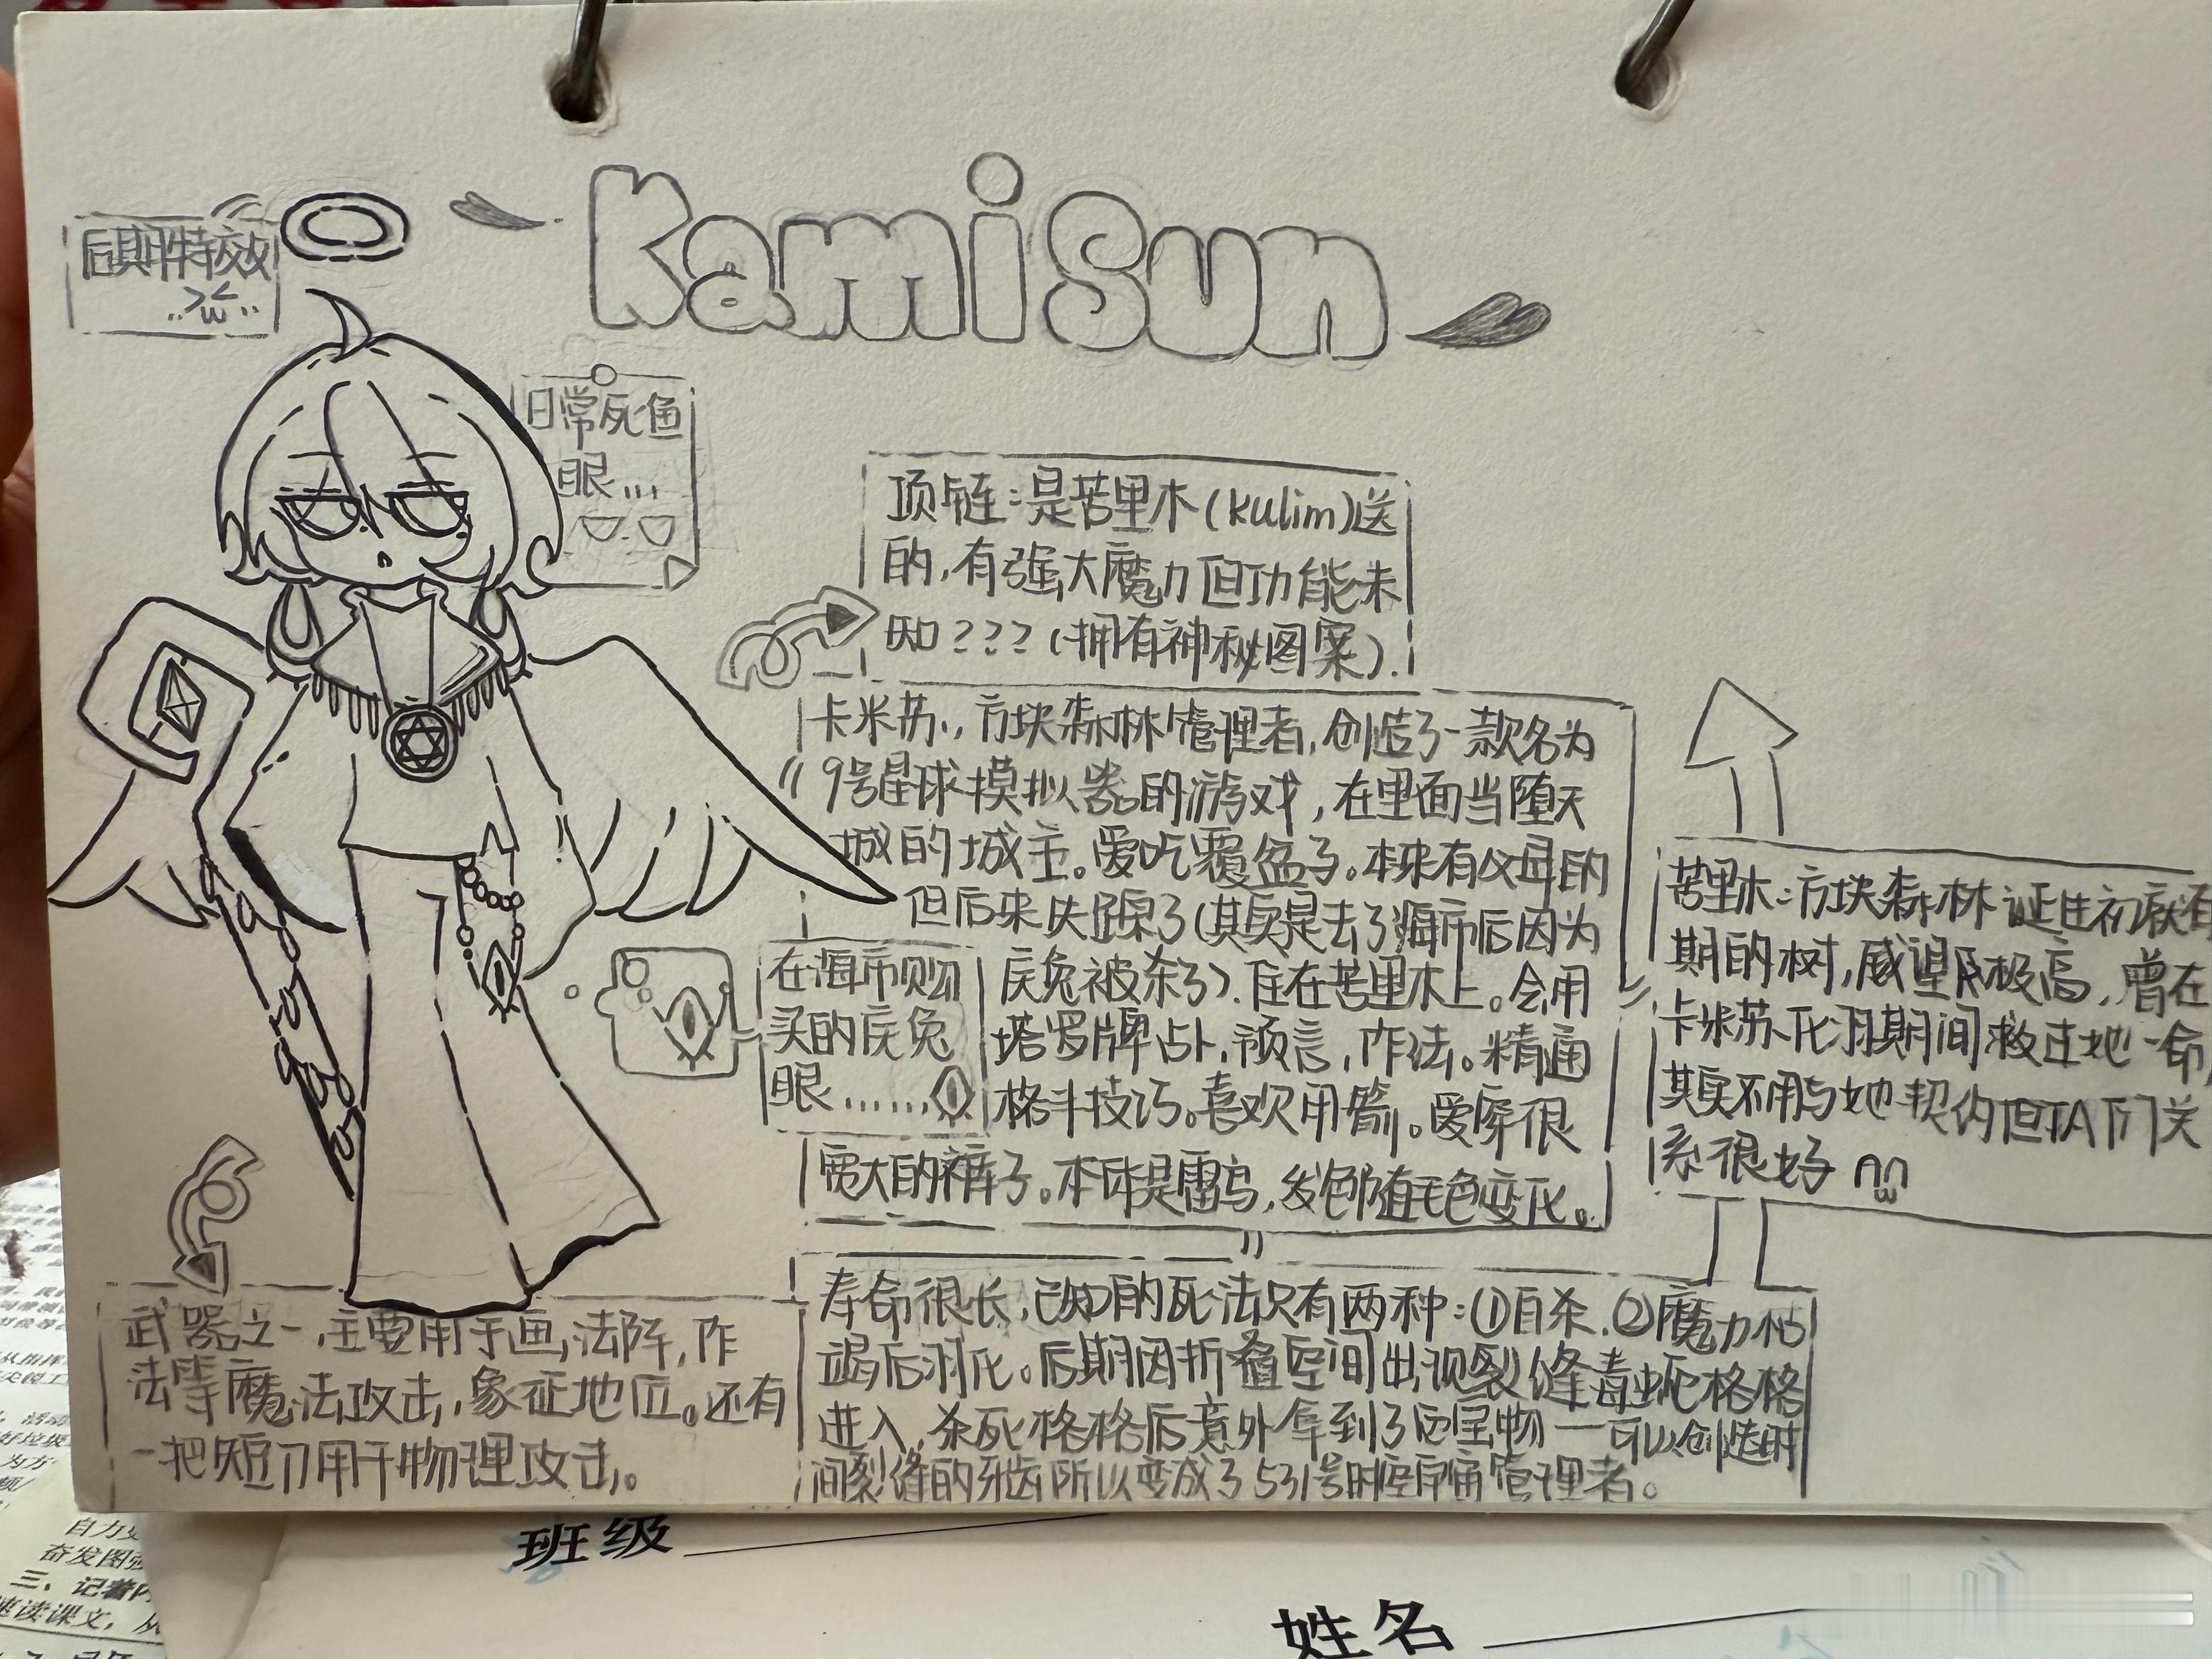 KamiSun
后期特效
日常死鱼
眼...
项链:是苦里木(kulim)送
的,有强大魔力但功能未
知???(拥有神秘图案).
卡米苏,方块森林管理者,创造了一款名为
9号星球模拟器的游戏,在里面当堕天
城的城主。爱吃覆盆子。本来有父母的
但后来失踪了(其实是去了海市后因为
庆兔被杀了).住在苦里木上。会用
塔罗牌占卜,预言,作法。精通
格斗技巧。喜欢用箭。爱穿很
宽大的裤子。本体是雷鸟,发色随毛色变化。
在海市购
买的庆兔
眼......
苦里木:方块森林诞生初就有
期的树,威望极高,曾在
卡米苏化羽期间救过她一命,
其实不用与她契约但TA们关
系很好
武器之一,主要用于画法阵,作
法等魔法攻击,象征地位。还有
一把短刀用于物理攻击。
寿命很长,已知的死法只有两种:①自杀.②魔力枯
竭后羽化。后期因折叠空间出现裂缝毒蛇格格
进入,杀死格格后意外拿到了它宝物一可以创造时
间裂缝的牙齿所以变成了531号时空管理者。
班级
姓名